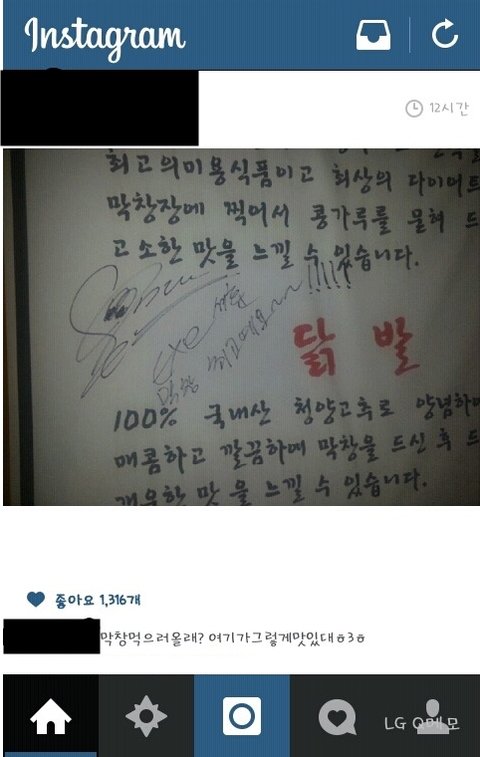 Instagram
12시간
최고의미용식품이고 최상의 다이어트
막창장에 찍어서 콩가루를 묻혀 드
고소한 맛을 느낄 수 있습니다.
exo
막창 최고예요~~!!!!!
닭 발
100% 국내산 청양고추로 양념하여
매콤하고 깔끔하며 막창을 드신 후 드
개운한 맛을 느낄 수 있습니다.
좋아요 1,316개
막창먹으러올래? 여기가그렇게맛있대ㅎ3ㅎ
LG Q메모